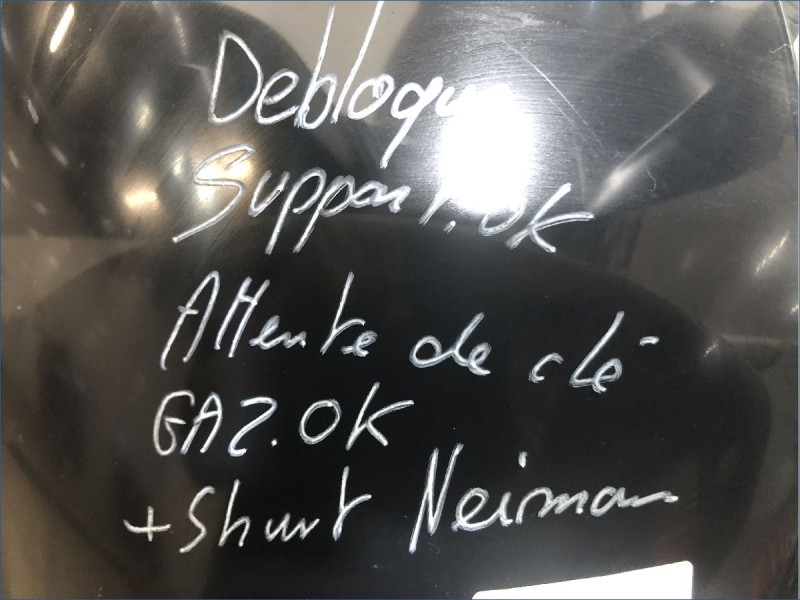 Debloque
Support. OK
Attente de clé
GAZ. OK
+ Shunt Neiman